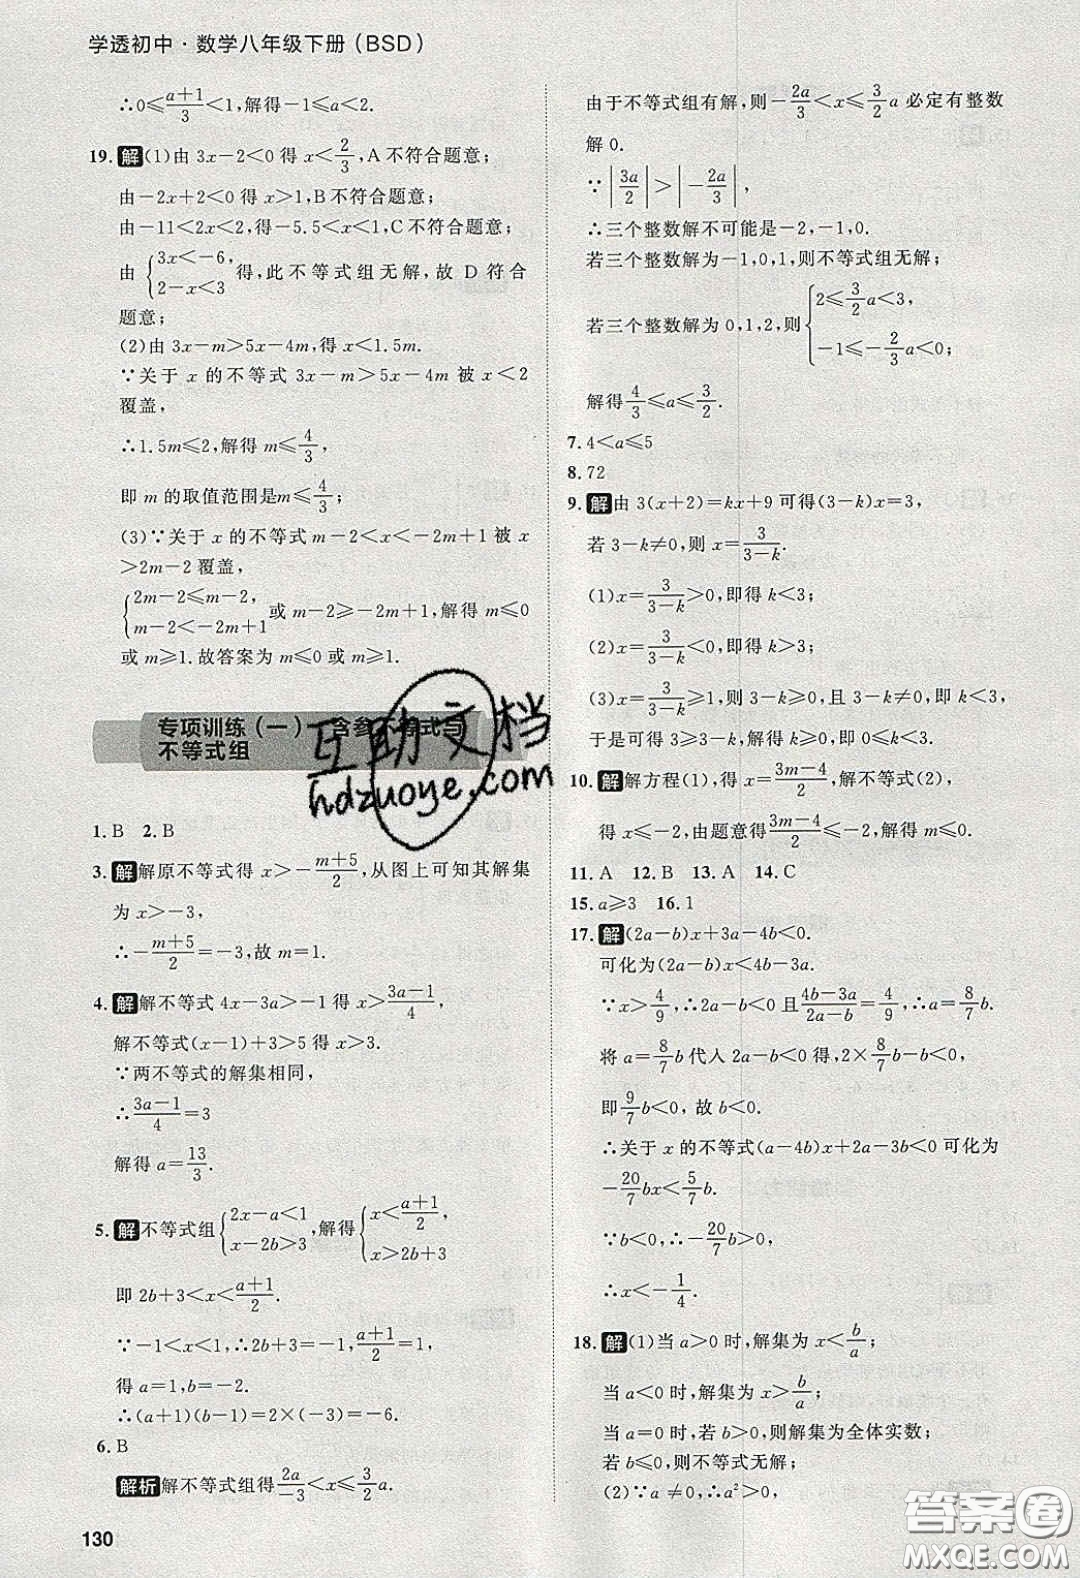 学透初中·数学八年级下册(BSD)
∴0⩽(a+1)/3<1,解得-1⩽a<2.
19.解(1)由3x-2<0得x<2/3,A不符合题意;
由-2x+2<0得x>1,B不符合题意;
由-11<2x<2,得-5.5<x<1,C不符合题意;
由{3x<-6, 2-x<3 得,此不等式组无解,故D符合
题意;
(2)由3x-m>5x-4m,得x<1.5m.
∵关于x的不等式3x-m>5x-4m被x<2
覆盖,
∴1.5m⩽2,解得m⩽4/3,
即m的取值范围是m⩽4/3;
(3)∵关于x的不等式m-2<x<-2m+1被x
>2m-2覆盖,
{2m-2⩽m-2, m-2<-2m+1 或m-2⩾-2m+1,解得m⩽0
或m⩾1.故答案为m⩽0或m⩾1.
专项训练(一) 含参不等式与
不等式组
1.B 2.B
3.解解原不等式得x>-(m+5)/2,从图上可知其解集
为x>-3,
∴-(m+5)/2=-3,故m=1.
4.解解不等式4x-3a>-1得x>(3a-1)/4,
解不等式(x-1)+3>5得x>3.
∵两不等式的解集相同,
∴(3a-1)/4=3
解得a=13/3.
5.解不等式组{2x-a<1 x-2b>3,解得{x<(a+1)/2, x>2b+3
即2b+3<x<(a+1)/2.
∵-1<x<1,∴2b+3=-1,(a+1)/2=1,
得a=1,b=-2.
∴(a+1)(b-1)=2×(-3)=-6.
6.B
解析解不等式组得2a/-3<x⩽3/2a.
130
由于不等式组有解,则-2a/3<x⩽3/2a必定有整数
解0.
∵|3a/2|>|-2a/3|,
∴三个整数解不可能是-2,-1,0.
若三个整数解为-1,0,1,则不等式组无解;
若三个整数解为0,1,2,则{2⩽3/2a<3, -1⩽-2/3a<0;
解得4/3⩽a⩽3/2.
7.4<a⩽5
8.72
9.解由3(x+2)=kx+9可得(3-k)x=3,
若3-k≠0,则x=3/(3-k).
(1)x=3/(3-k)>0,即得k<3;
(2)x=3/(3-k)<0,即得k>3;
(3)x=3/(3-k)⩾1,则3-k>0,且3-k⩽3,
于是可得k<3且k⩾0,即0⩽k<3.
10.解解方程(1),得x=(3m-4)/2,解不等式(2),
得x⩽-2,由题意得(3m-4)/2⩽-2,解得m⩽0.
11.A 12.B 13.A 14.C
15.a⩾3 16.1
17.解(2a-b)x+3a-4b<0.
可化为(2a-b)x<4b-3a.
∵x>4/9,∴2a-b<0且(4b-3a)/(2a-b)=4/9,∴a=8/7b.
将a=8/7b代入2a-b<0得,2×8/7b-b<0,
即9/7b<0,故b<0.
∴关于x的不等式(a-4b)x+2a-3b<0可化为
-20/7bx<5/7b.
∵b<0,∴-20/7b>0,
∴x<-1/4.
18.解(1)当a>0时,解集为x<b/a;
当a<0时,解集为x>b/a;
当a=0时,若b>0,则解集为全体实数;
若b⩽0,则不等式无解;
(2)∵a≠0,∴a²>0,
互助文档
hdzuoye.com
答案圈
MXQE.COM